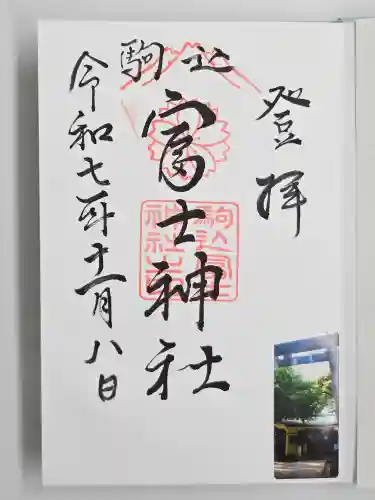 登拝
駒込
富士神社
駒込富士神社之印
令和七年十一月八日